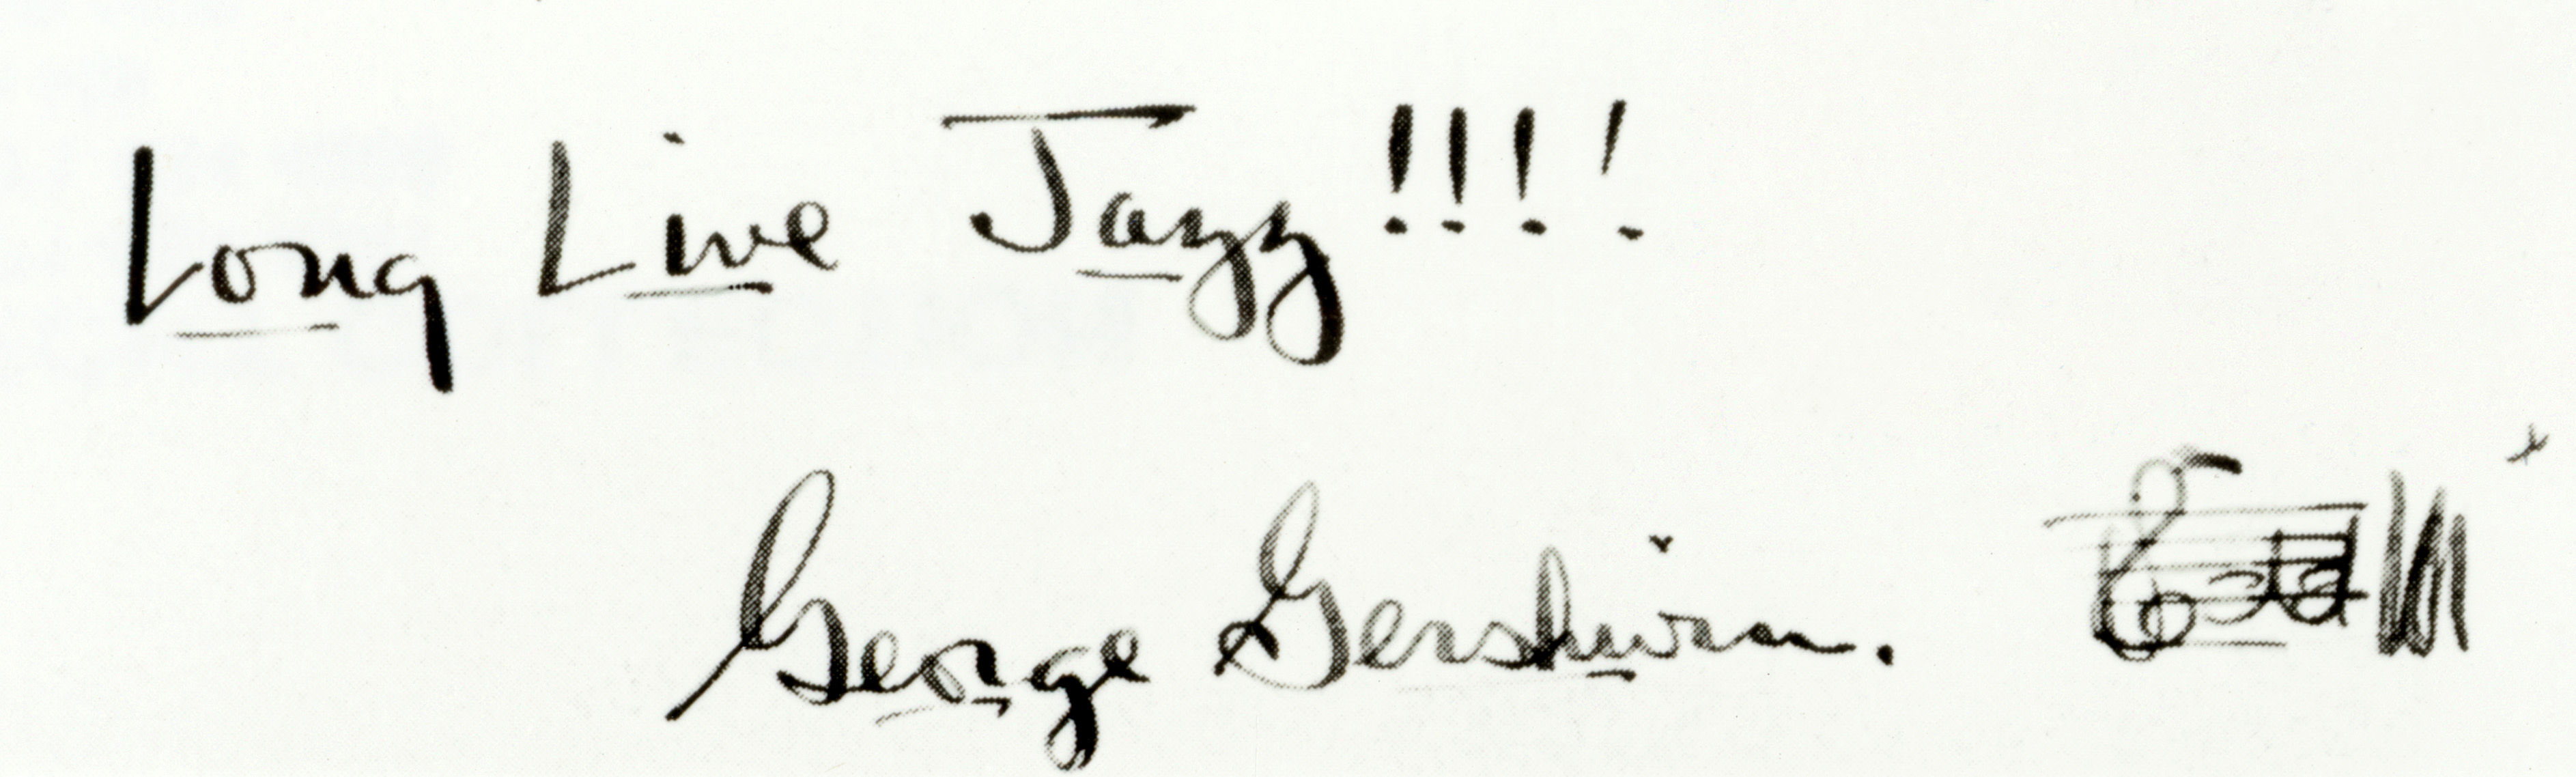 Long Live Jazz!!!!
George Gershwin.